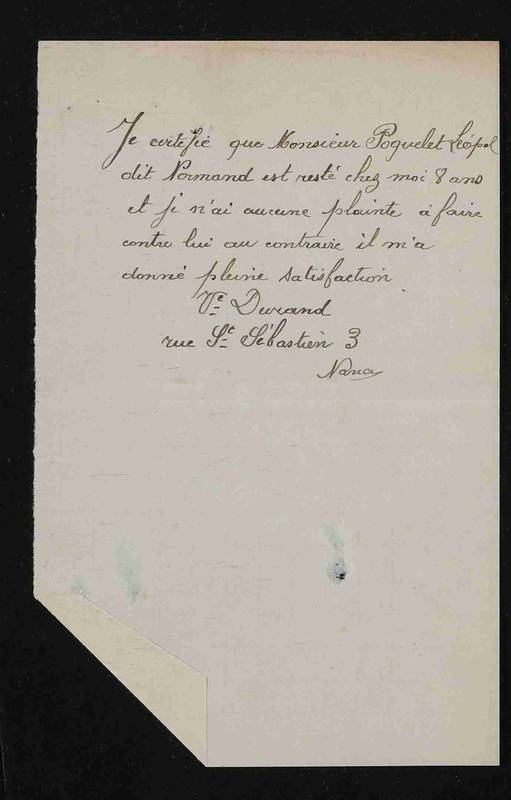 Je certifié que Monsieur Poquelet Léopol
dit Normand est resté chez moi 8 ans
et je n'ai aucune plainte à faire
contre lui au contraire il m'a
donné pleine satisfaction
Ve Durand
rue St Sébastien 3